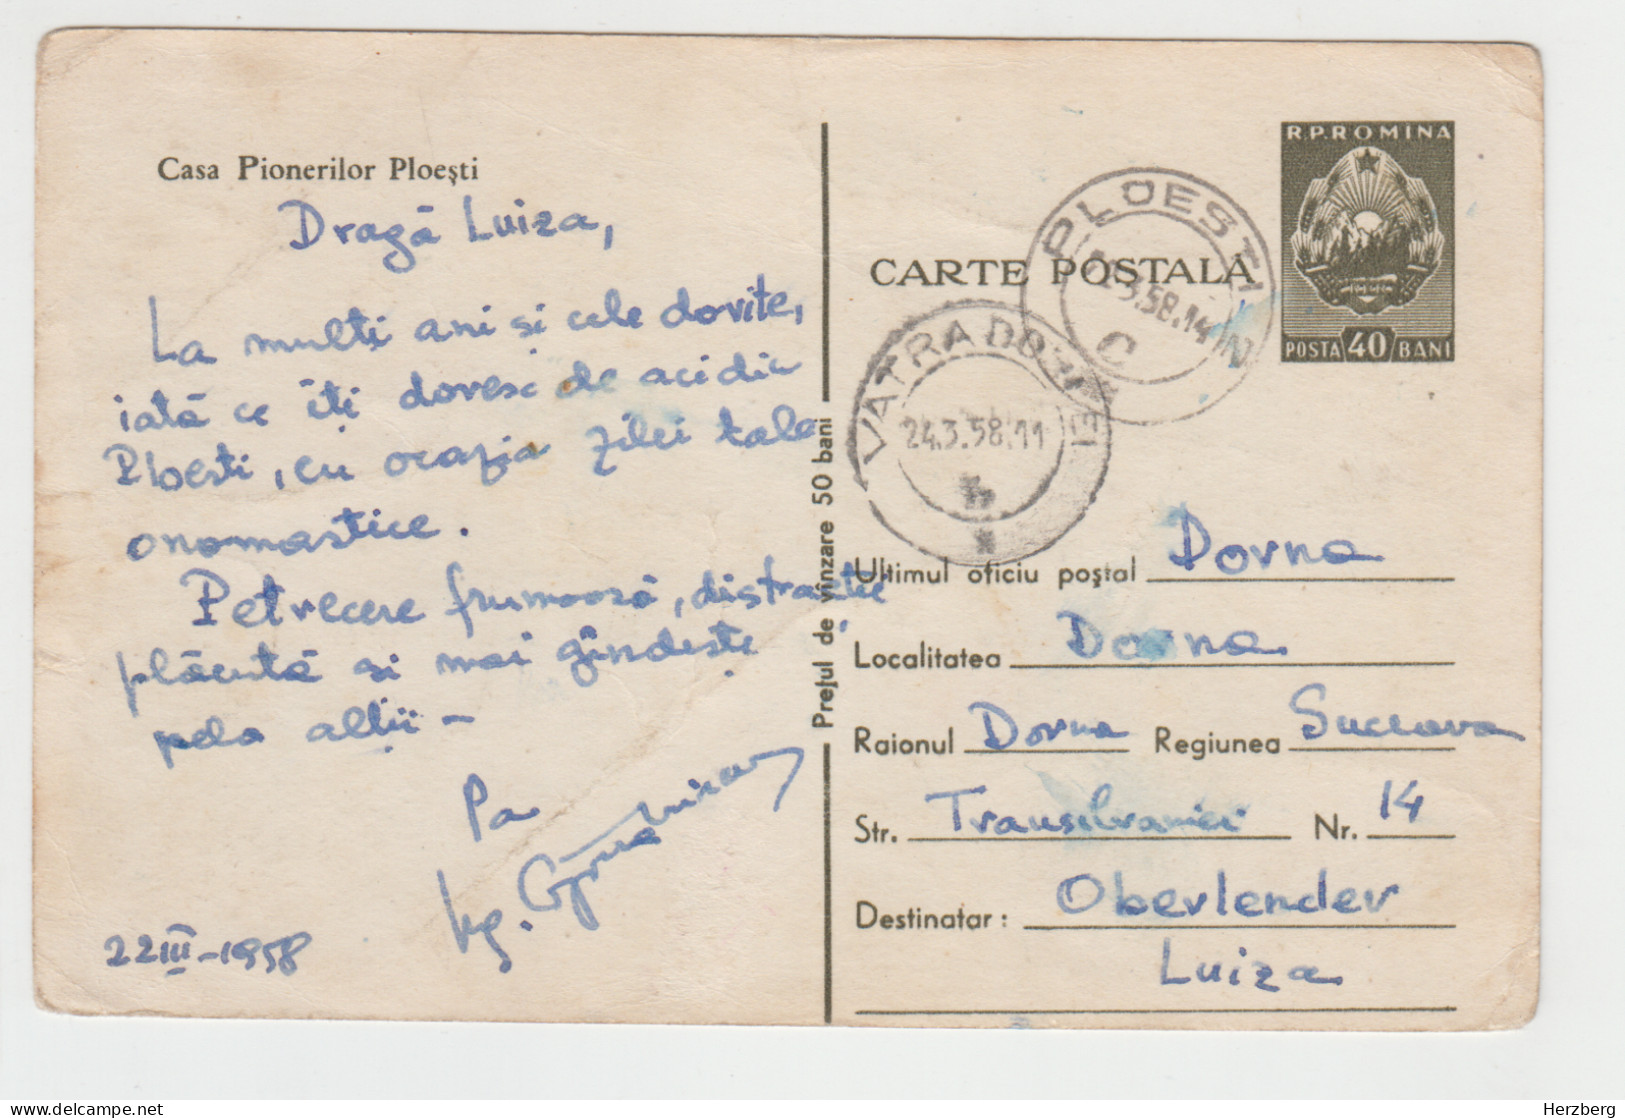 Casa Pionerilor Ploești
Dragă Luiza,
La mulți ani si cele dorite,
iată ce îti doresc de aci din
Ploesti, cu ocazia zilei tale
onomastice.
Petrecere frumoasă, distracție
plăcută si mai gîndește
pela alții –
Pa
22 III - 1958
Prețul de vînzare 50 bani
R.P.ROMINA
POSTA 40 BANI
CARTE POSTALA
PLOESTI
3.58.14
C
VATRA DORNEI
24.3.58.11
Ultimul oficiu poștal Dorna
Localitatea Dorna
Raionul Dorna Regiunea Suceava
Str. Transilvaniei Nr. 14
Destinatar: Oberlender
Luiza
Herzberg